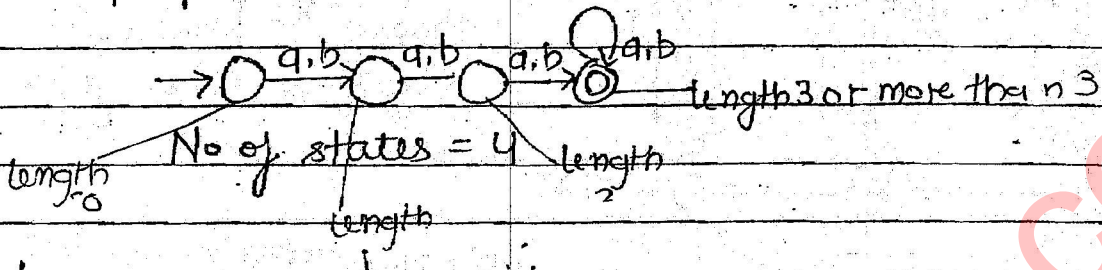 a,b a,b a,b a,b
length 3 or more than 3
No of states = 4
length
0
length
2
length